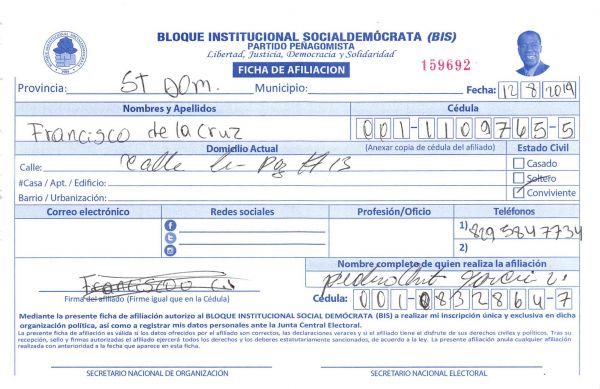 BLOQUE INSTITUCIONAL SOCIALDEMÓCRATA (BIS)
PARTIDO PEÑAGOMISTA
Libertad, Justicia, Democracia y Solidaridad
FICHA DE AFILIACION
159692
Provincia: St Dom. Municipio: Fecha: 12 8 2019
Nombres y Apellidos Cédula
Francisco de la Cruz 001-1109765-5
Domicilio Actual (Anexar copia de cédula del afiliado) Estado Civil
Calle: Calle la Paz # 13 Casado
#Casa / Apt. / Edificio: Soltero
Barrio / Urbanización: Conviviente
Correo electrónico Redes sociales Profesión/Oficio Teléfonos
1) 829 5847734
2)
Nombre completo de quien realiza la afiliación
Francisco
Firma del afiliado (Firme igual que en la Cédula)
Cédula: 001-0832864-7
Mediante la presente ficha de afiliación autorizo al BLOQUE INSTITUCIONAL SOCIAL DEMÓCRATA (BIS) a realizar mi inscripción única y exclusiva en dicha
organización política, así como a registrar mis datos personales ante la Junta Central Electoral.
La presente ficha de afiliación es válida si los datos ofrecidos por el afiliado son correctos, las declaraciones veraces y si el afiliado tiene el disfrute de sus derechos civiles y políticos. Tras su
recepción, sello y firmas autorizadas el afiliado ejercerá todos los derechos y los deberes estatutariamente sancionados, de acuerdo a la ley. La presente afiliación anula cualquier afiliación
realizada con anterioridad a la fecha que aparece en esta ficha.
SECRETARIO NACIONAL DE ORGANIZACIÓN SECRETARIO NACIONAL ELECTORAL